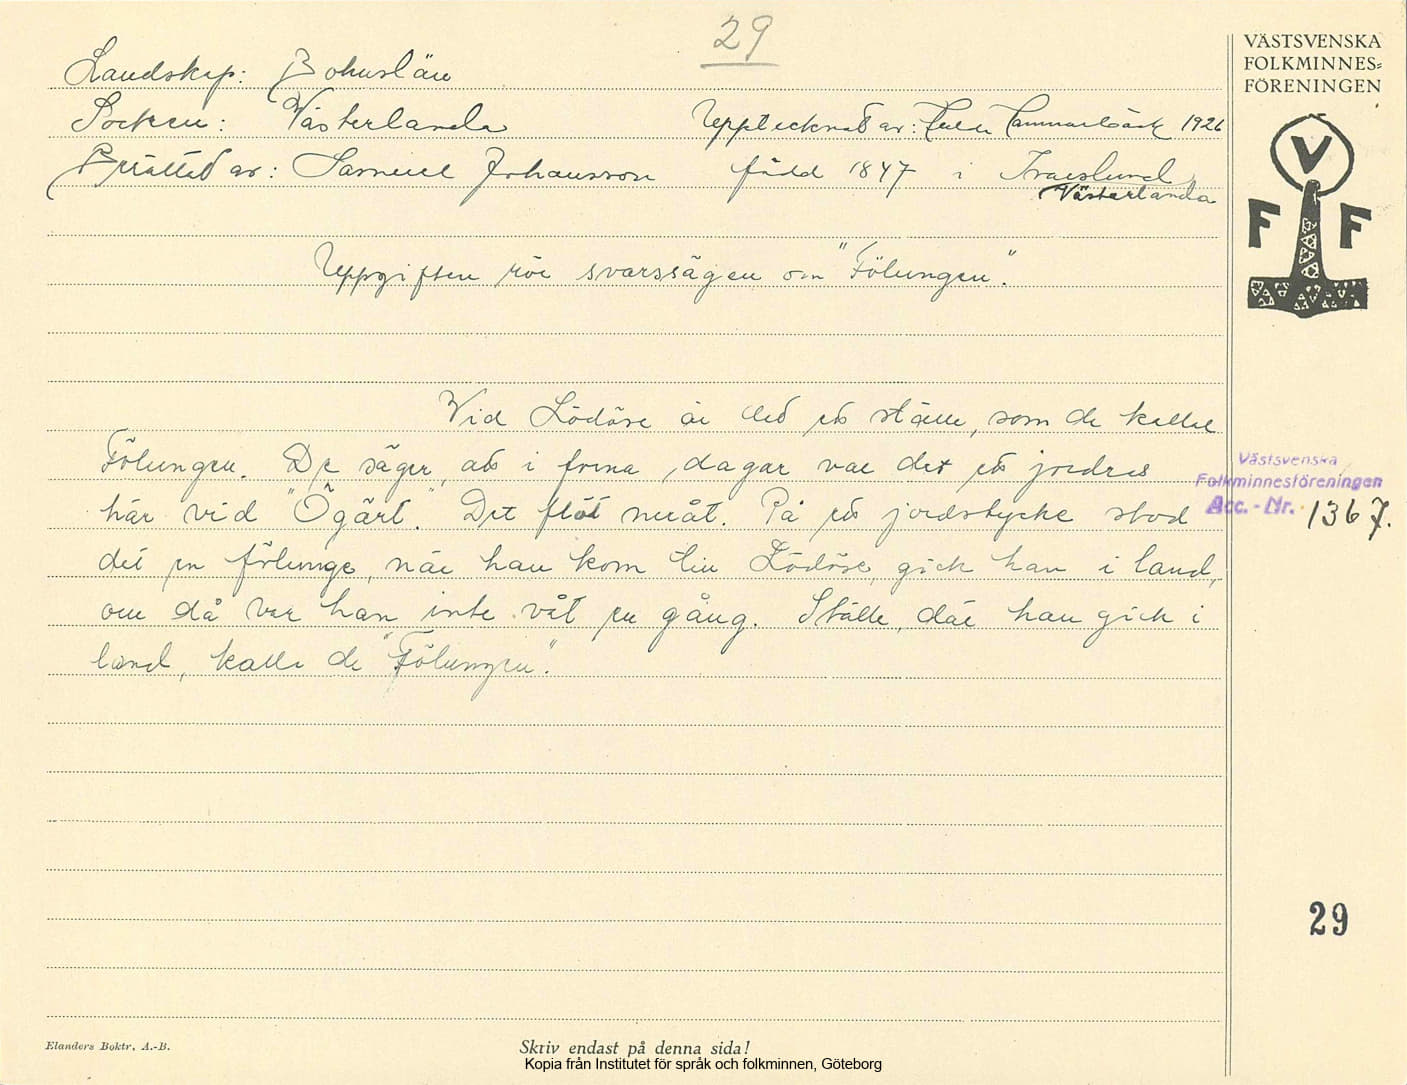 29
VÄSTSVENSKA
FOLKMINNES=
FÖRENINGEN
V
F F
Landskap: Bohuslän
Socken: Västerlanda Upptecknat av: 1926
Berättat av: Samuel Johansson född 1847 i
Västerlanda
Uppgiften rör svarssägen om "Fölungen".
Vid Lödöse är det ett ställe, som de kallar
Fölungen. De säger, att i forna dagar var det ett jordras
här vid "Ögärt". Det flöt neråt. På ett jordstycke stod
det en fölunge, när han kom till Lödöse, gick han i land,
om då var han inte våt en gång. Ställe, där han gick i
land, kalla de "Fölungen".
Västsvenska
Folkminnesföreningen
Acc.-Nr. 1367.
29
Elanders Boktr. A.-B.
Skriv endast på denna sida!
Kopia från Institutet för språk och folkminnen, Göteborg